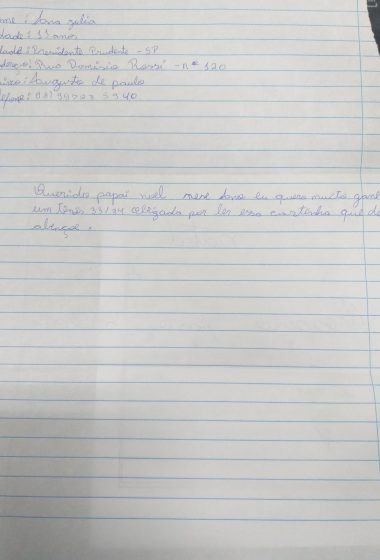 me: Ana julia
dade: 11 anos
dade: Presidente Prudente - SP
dereço: Rua Domísio Rossi - nº 120
airro: Augusto de paulo
lefone:
Querido papai noel meu Ana eu quero muito ganh
um tênis 33/34 obrigada por ler essa cartinha que de
abençoe.